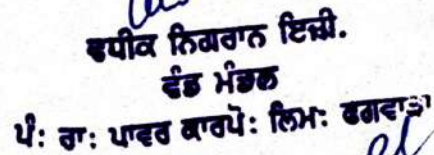 ਵਧੀਕ ਨਿਗਰਾਨ ਇੰਜੀ.
ਵੰਡ ਮੰਡਲ
ਪੰ: ਰਾ: ਪਾਵਰ ਕਾਰਪੋ: ਲਿਮ: ਫਗਵਾੜਾ